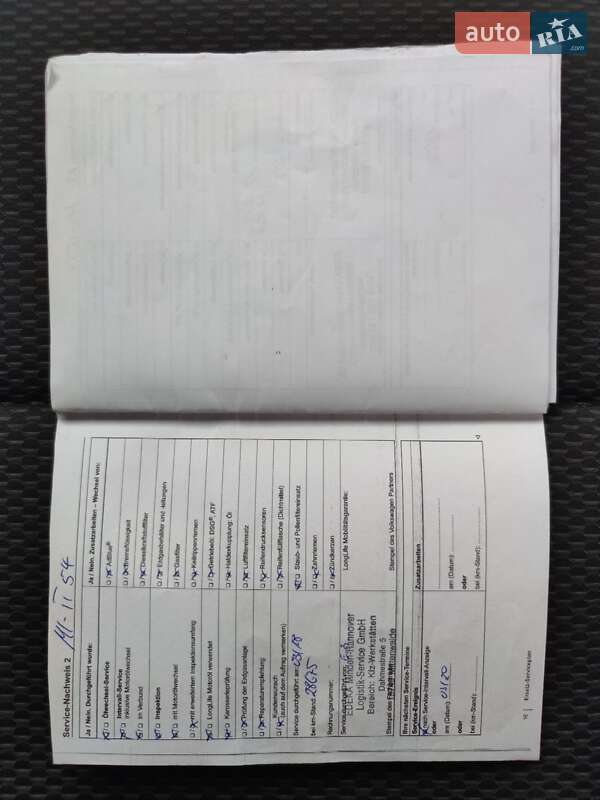 auto RIA .com
Service-Nachweis 2
Ja / Nein. Durchgeführt wurde:
Ölwechsel-Service
Intervall-Service
inklusive Motorölwechsel
im Verbund
Inspektion
mit Motorölwechsel
mit erweitertem Inspektionsumfang
LongLife Motoröl verwendet
Karosserieprüfung
Prüfung der Erdgasanlage
Reparaturempfehlung
Kundenwunsch
(auch auf dem Auftrag vermerken)
Service durchgeführt am:
bei km-Stand: 28675
Rechnungsnummer:
EDEKA Minden-Hannover
Logistik-Service GmbH
Bereich: Kfz-Werkstätten
Dahmestraße 5
Ihre nächsten Service-Termine
Service-Ereignis
nach Service-Intervall-Anzeige
oder
am (Datum): 03/20
oder
bei (km-Stand):
Ja / Nein. Zusatzarbeiten – Wechsel von:
AdBlue®
Bremsflüssigkeit
Dieselkraftstofffilter
Erdgasbehälter und -leitungen
Gasfilter
Keilrippenriemen
Getriebeöl: DSG®, ATF
Haldexkupplung: Öl
Luftfiltereinsatz
Reifendrucksensoren
Reifenfüllflasche (Dichtmittel)
Staub- und Pollenfiltereinsatz
Zahnriemen
Zündkerzen
LongLife Mobilitätsgarantie:
Stempel des Volkswagen Partners
Zusatzarbeiten
am (Datum):
oder
bei (km-Stand):
16
Einsatz-Serviceplan